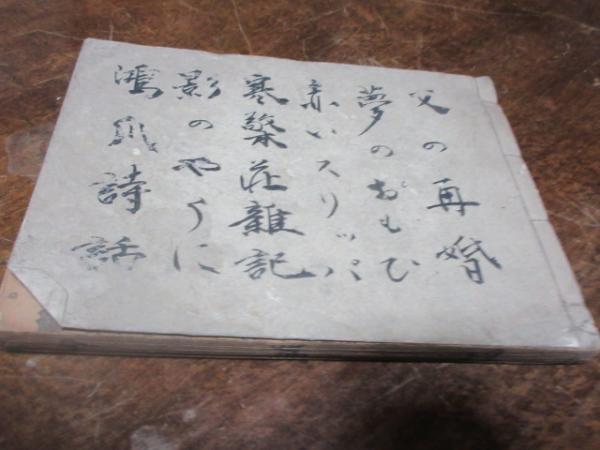 父の再婚
夢のおもひ
赤いスリッパ
寒檠荘雑記
影のやうに
鴻爪詩話